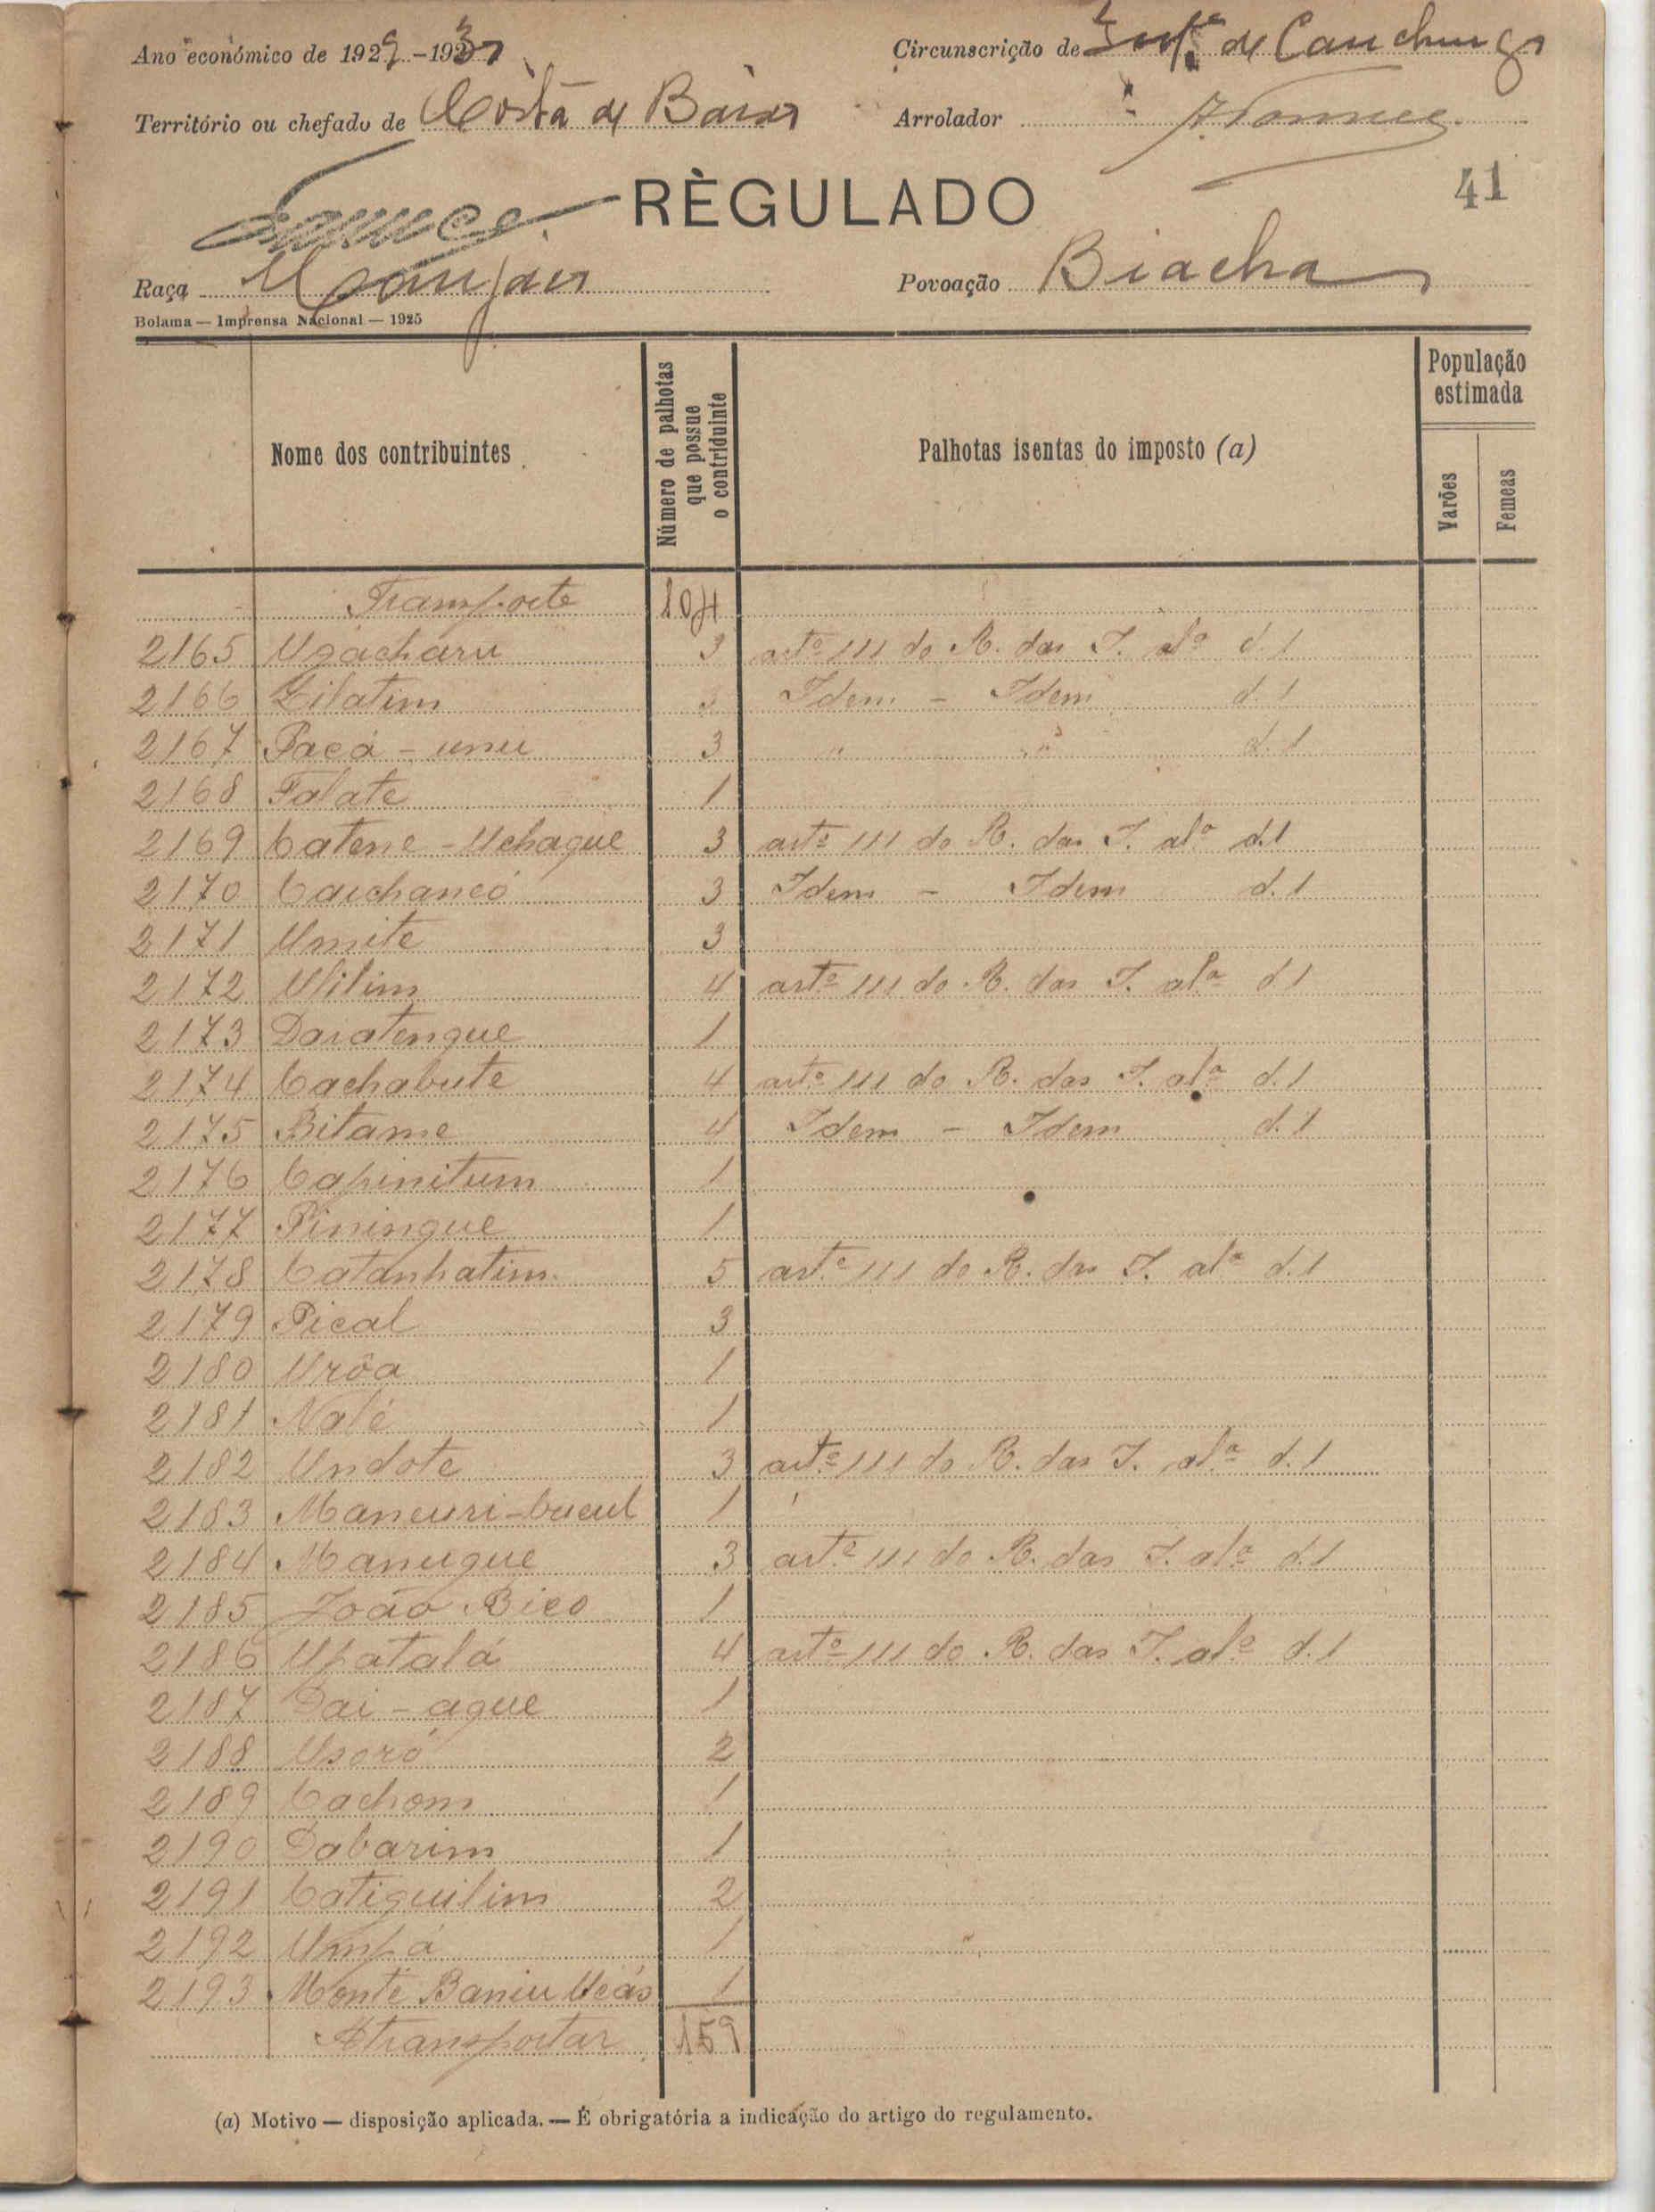 Ano económico de 1929-1930
Circunscrição de de Canchungo
Território ou chefado de Costa de Baixo
Arrolador
RÈGULADO
41
Raça Manjaco
Povoação Biacha
Bolama — Imprensa Nacional — 1925
Nome dos contribuintes
Número de palhotas que possue o contriduinte
Palhotas isentas do imposto (a)
População estimada
Varões
Femeas
Transporte 104
2165 Ugacharu 3 artº 111 do R. das I. alª d.1
2166 Lilatim 3 Idem - Idem d.1
2167 Pacá-unu 3 " " d.1
2168 Falate 1
2169 Catene-Uchaque 3 artº 111 do R. das I. alª d.1
2170 Caichancó 3 Idem - Idem d.1
2171 Umite 3
2172 Ulilim 4 artº 111 do R. das I. alª d.1
2173 Daratengue 1
2174 Cachabute 4 artº 111 do R. das I. alª d.1
2175 Bitame 4 Idem - Idem d.1
2176 Capinitum 1
2177 Piningue 1
2178 Catanhatim 5 artº 111 do R. das I. alª d.1
2179 Pical 3
2180 Urôa 1
2181 Nalé 1
2182 Undote 3 artº 111 do R. das I. alª d.1
2183 Mancuri-Cucul 1
2184 Manugue 3 artº 111 do R. das I. alª d.1
2185 João Bico 1
2186 Upatalá 4 artº 111 do R. das I. alª d.1
2187 Dai-ague 1
2188 Usoró 2
2189 Cachom 1
2190 Dabarim 1
2191 Catiguilim 2
2192 Umpá 1
2193 Monte Baniu Ucás 1
A transportar 159
(a) Motivo — disposição aplicada. — É obrigatória a indicação do artigo do regulamento.